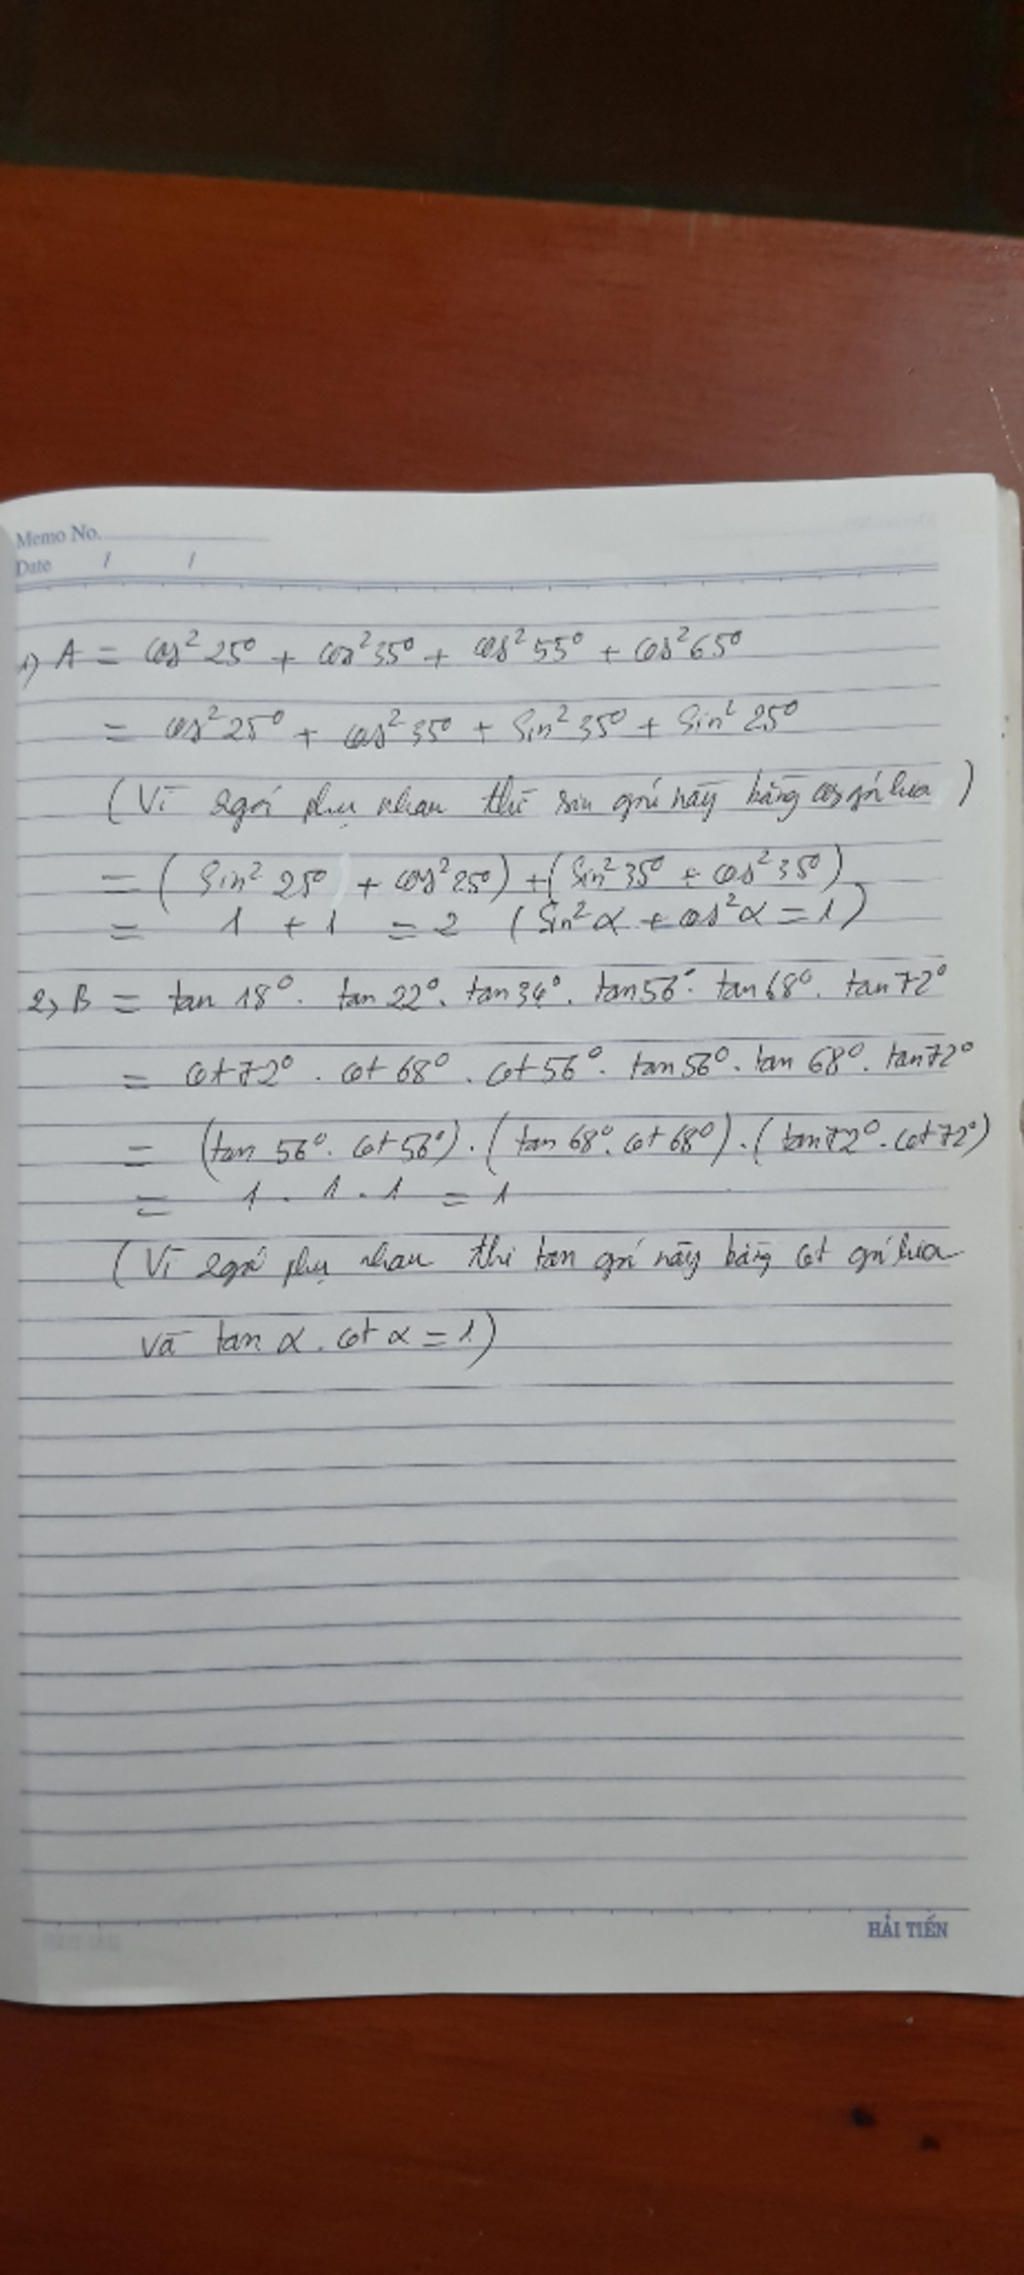 Memo No.
Date / /
1) A = cos² 25⁰ + cos² 35⁰ + cos² 55⁰ + cos² 65⁰
= cos² 25⁰ + cos² 35⁰ + Sin² 35⁰ + Sin² 25⁰
(Vì 2 góc phụ nhau thì sin góc này bằng cos góc kia)
= (Sin² 25⁰) + cos² 25⁰) + (Sin² 35⁰ + cos² 35⁰)
= 1 + 1 = 2 (Sin² α + cos² α = 1)
2) B = tan 18⁰ . tan 22⁰ . tan 34⁰ . tan 56⁰ . tan 68⁰ . tan 72⁰
= cot 72⁰ . cot 68⁰ . cot 56⁰ . tan 56⁰ . tan 68⁰ . tan 72⁰
= (tan 56⁰ . cot 56⁰) . (tan 68⁰ . cot 68⁰) . (tan 72⁰ . cot 72⁰)
= 1 . 1 . 1 = 1
(Vì 2 góc phụ nhau thì tan góc này bằng cot góc kia
và tan α . cot α = 1)
HẢI TIẾN